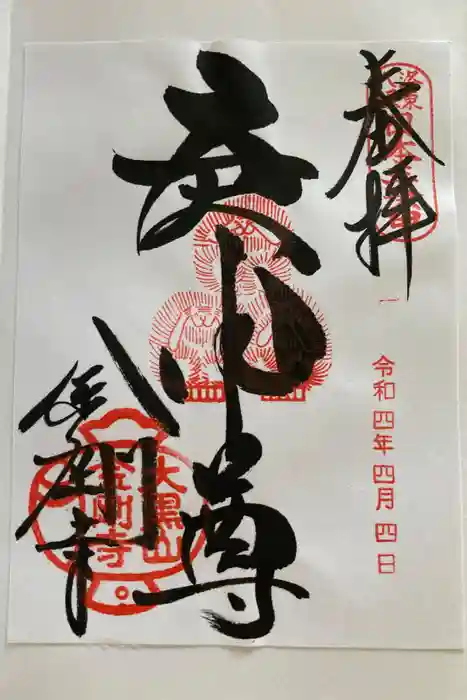 奉拝
洛東
令和四年四月四日
庚申尊
金剛寺
大黒山
金剛寺